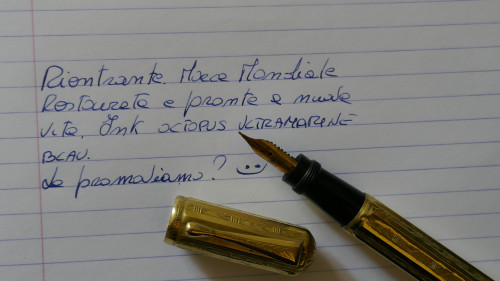 Rientrante Marca Mondiale
Restaurata e pronta a nuova
vita. Ink OCTOPUS ULTRAMARINE
BLAU.
La promoviamo?